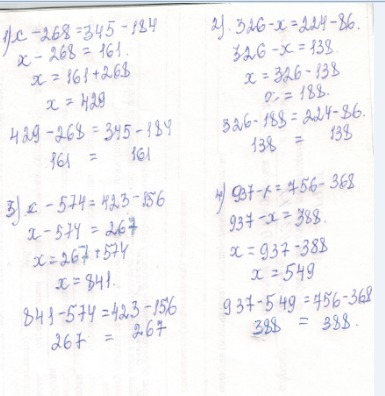 1) x - 268 = 345 - 184
x - 268 = 161.
x = 161 + 268
x = 429
429 - 268 = 345 - 184
161 = 161
2) 326 - x = 224 - 86.
326 - x = 138.
x = 326 - 138
x = 188.
326 - 188 = 224 - 86.
138 = 138
3) x - 574 = 423 - 156
x - 574 = 267
x = 267 + 574
x = 841.
841 - 574 = 423 - 156
267 = 267
4) 937 - x = 756 - 368
937 - x = 388.
x = 937 - 388
x = 549
937 - 549 = 756 - 368
388 = 388.